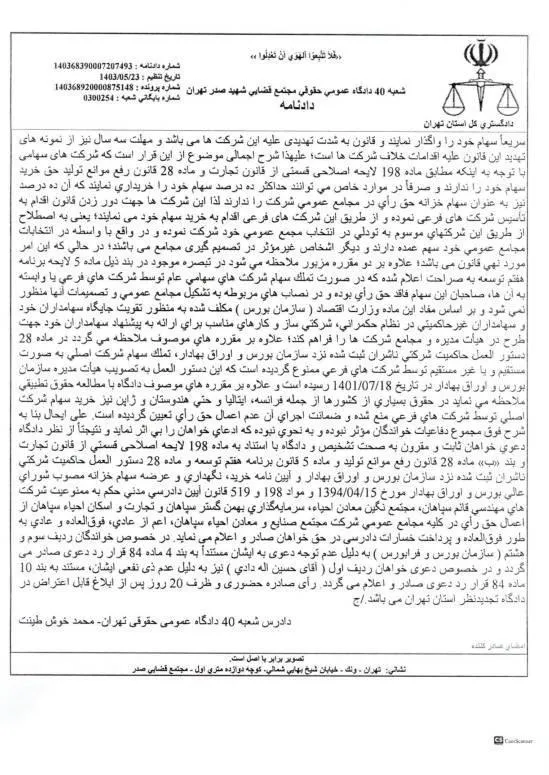 «فَلاَ تَتَّبِعُوا الْهَوَى أَنْ تَعْدِلُوا »
شماره دادنامه : 140368390007207493
تاریخ تنظیم : 1403/05/23
شماره پرونده : 140368920000875148
شماره بایگانی شعبه : 0300254
شعبه 40 دادگاه عمومی حقوقی مجتمع قضایی شهید صدر تهران
دادنامه
دادگستری کل استان تهران
سریعاً سهام خود را واگذار نمایند و قانون به شدت تهدیدی علیه این شرکت ها می باشد و مهلت سه سال نیز از نمونه های
تهدید این قانون علیه اقدامات خلاف شرکت ها است؛ علیهذا شرح اجمالی موضوع از این قرار است که شرکت های سهامی
با توجه به اینکه مطابق ماده 198 لایحه اصلاحی قسمتی از قانون تجارت و ماده 28 قانون رفع موانع تولید حق خرید
سهام خود را ندارند و صرفاً در موارد خاص می توانند حداکثر ده درصد سهام خود را خریداری نمایند که آن ده درصد
نیز به عنوان سهام خزانه حق رأی در مجامع عمومی شرکت را ندارند لذا این شرکت ها جهت دور زدن قانون اقدام به
تأسیس شرکت های فرعی نموده و از طریق این شرکت های فرعی اقدام به خرید سهام خود می نمایند؛ یعنی به اصطلاح
از طریق این شرکتهای موسوم به تودلی در انتخاب مجمع عمومی خود شرکت نموده و در واقع با واسطه در انتخابات
مجامع عمومی خود سهم عمده دارند و دیگر اشخاص غیرمؤثر در تصمیم گیری مجامع می باشند؛ در حالی که این امر
مورد نهی قانون می باشد؛ علاوه بر دو مقرره مزبور ملاحظه می شود در تبصره موجود در بند ذیل ماده 5 لایحه برنامه
هفتم توسعه به صراحت اعلام شده که در صورت تملک سهام شرکت های سهامی عام توسط شرکت های فرعی یا وابسته
به آن ها، صاحبان این سهام فاقد حق رأی بوده و در نصاب های مربوطه به تشکیل مجامع عمومی و تصمیمات آنها منظور
نمی شود و بر اساس مفاد این ماده وزارت اقتصاد ( سازمان بورس ) مکلف شده به منظور تقویت جایگاه سهامداران خود
و سهامداران غیرحاکمیتی در نظام حکمرانی، شرکتی ساز و کارهای مناسب برای ارائه به پیشنهاد سهامداران خود جهت
طرح در هیأت مدیره و مجامع شرکت ها را فراهم کند؛ علاوه بر مقرره های موصوف ملاحظه می گردد در ماده 28
دستور العمل حاکمیت شرکتی ناشران ثبت شده نزد سازمان بورس و اوراق بهادار، تملک سهام شرکت اصلی به صورت
مستقیم و یا غیر مستقیم توسط شرکت های فرعی ممنوع گردیده است که این دستور العمل به تصویب هیأت مدیره سازمان
بورس و اوراق بهادار در تاریخ 1401/07/18 رسیده است و علاوه بر مقرره های موصوف دادگاه با مطالعه حقوق تطبیقی
ملاحظه می نماید در حقوق بسیاری از کشورها از جمله فرانسه، ایتالیا و حتی هندوستان و ژاپن نیز خرید سهام شرکت
اصلی توسط شرکت های فرعی منع شده و ضمانت اجرای آن عدم اعمال حق رأی تعیین گردیده است. علی ایحال بنا به
شرح فوق مجموع دفاعیات خواندگان مؤثر نبوده و به نحوی نبوده که ادعای خواهان را بی اثر نماید و نتیجتاً از نظر دادگاه
دعوی خواهان ثابت و مقرون به صحت تشخیص و دادگاه با استناد به ماده 198 لایحه اصلاحی قسمتی از قانون تجارت
و بند «ب» ماده 28 قانون رفع موانع تولید و ماده 5 قانون برنامه هفتم توسعه و ماده 28 دستور العمل حاکمیت شرکتی
ناشران ثبت شده نزد سازمان بورس و اوراق بهادار و آیین نامه خرید، نگهداری و عرضه سهام خزانه مصوب شورای
عالی بورس و اوراق بهادار مورخ 1394/04/15 و مواد 198 و 519 قانون آیین دادرسی مدنی حکم به ممنوعیت شرکت
های مهندسی قائم سپاهان، مجتمع نگین معادن احیاء، سرمایه‌گذاری بهمن گستر سپاهان و تجارت و اسکان احیاء سپاهان از
اعمال حق رأی در کلیه مجامع عمومی شرکت مجتمع صنایع و معادن احیاء سپاهان، اعم از عادی، فوق‌العاده و عادی به
طور فوق‌العاده و پرداخت خسارات دادرسی در حق خواهان صادر و اعلام می نماید. در خصوص خواندگان ردیف سوم و
هشتم ( سازمان بورس و فرابورس ) به دلیل عدم توجه دعوی به ایشان مستنداً به بند 4 ماده 84 قرار رد دعوی صادر می
گردد و در خصوص دعوی خواهان ردیف اول ( آقای حسین اله دادی ) نیز به دلیل عدم ذی نفعی ایشان، مستند به بند 10
ماده 84 قرار رد دعوی صادر و اعلام می گردد. رأی صادره حضوری و ظرف 20 روز پس از ابلاغ قابل اعتراض در
دادگاه تجدیدنظر استان تهران می باشد./ج
دادرس شعبه 40 دادگاه عمومی حقوقی تهران- محمد خوش طینت
امضای صادر کننده
تصویر برابر با اصل است.
نشانی: تهران - ونک - خیابان شیخ بهایی شمالی- کوچه دوازده متری اول - مجتمع قضایی صدر
CamScanner